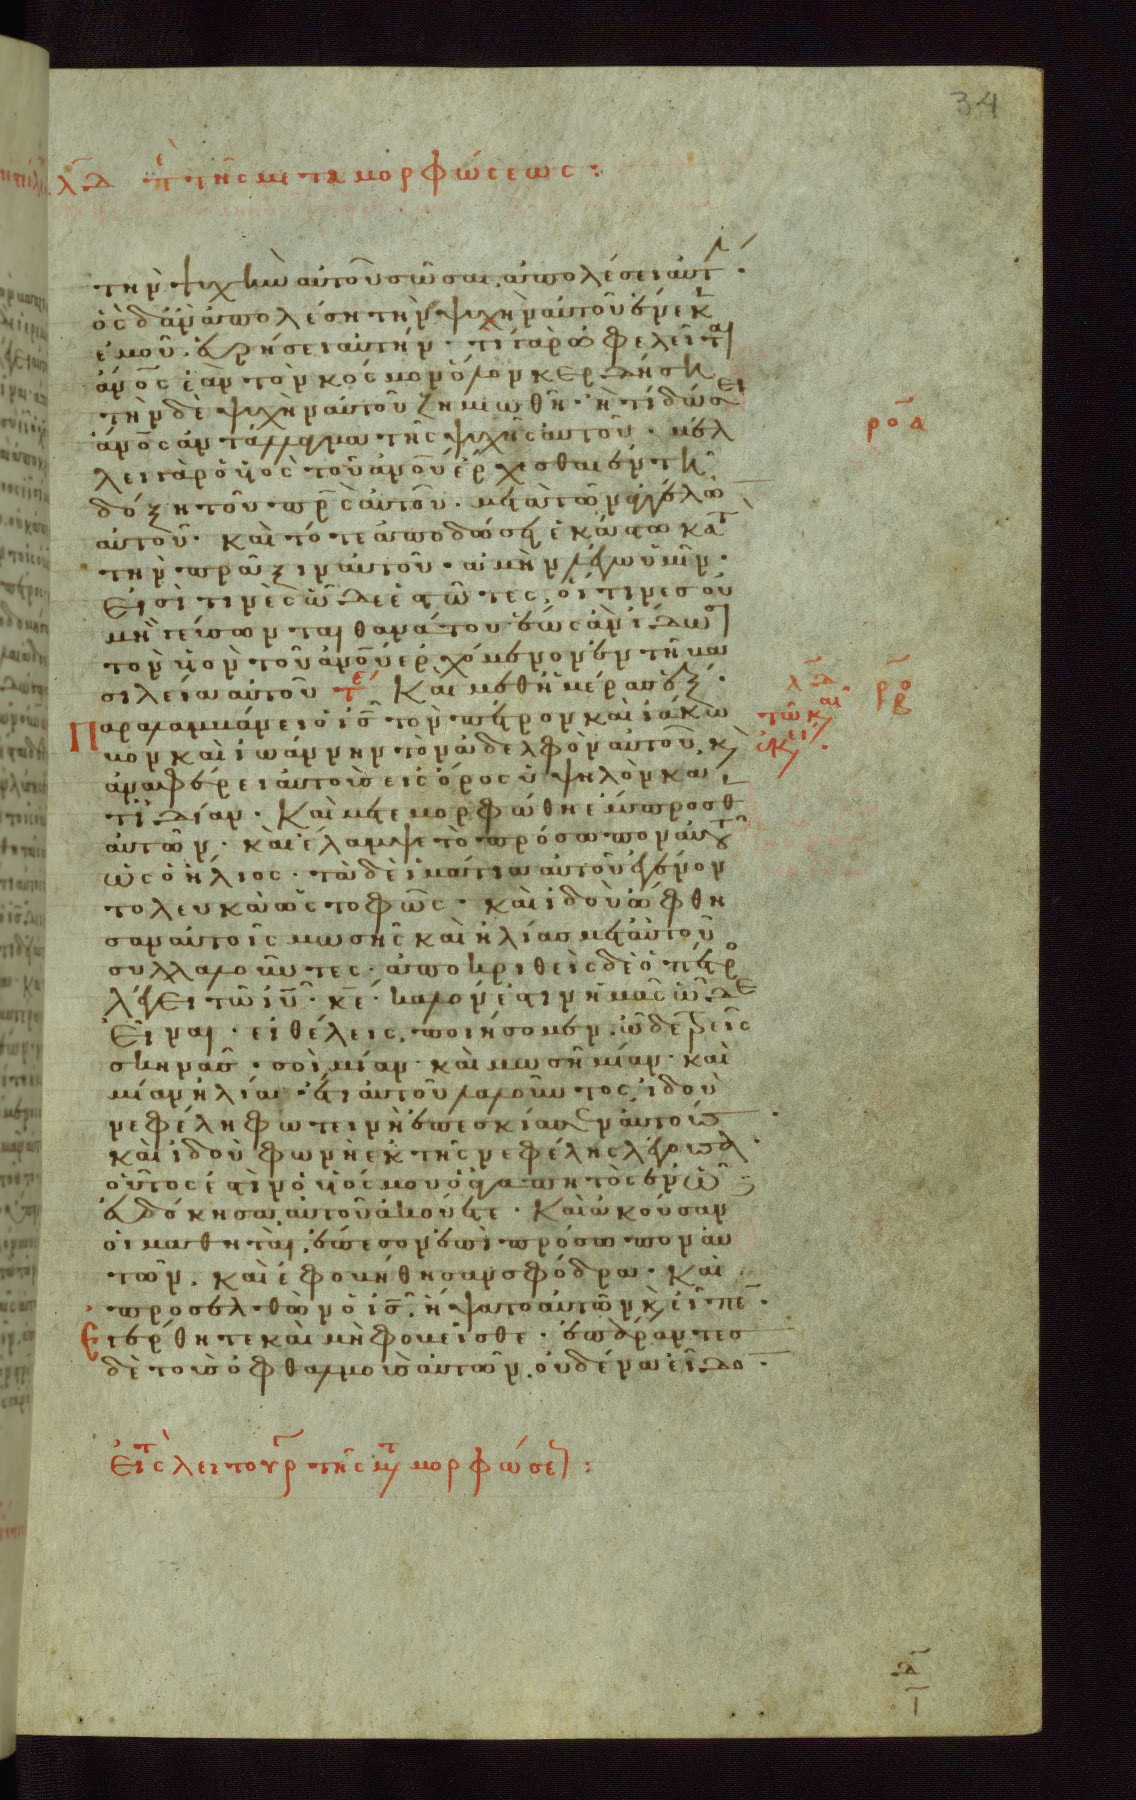 34
λδ περὶ τῆς μεταμορφώσεως:
την ψυχὴν αὐτοῦ σῶσαι, ἀπολέσει αὐτ´.
ὃς δἂν ἀπολέση τὴν ψυχὴν αὐτοῦ ἕνεκ
ἐμοῦ. εὑρήσει αὐτήν. τί γὰρ ὠφελεῖται
ἄνος ἐὰν τὸν κόσμον ὅλον κερδήση
τὴν δὲ ψυχὴν αὐτοῦ ζημιωθῆ. ἢ τί δώσει
ἄνος ἀντάλλαγμα τῆς ψυχῆς αὐτοῦ. μέλ
ροα
λει γὰρ ὁ υἱὸς τοῦ ἀνου ἔρχεσθαι ἐν τῆ
δόξη τοῦ πρς αὐτοῦ. μετὰ τῶν ἀγγέλω
αὐτοῦ. καὶ τότε ἀποδώσει ἑκάστω κατ
τὴν πρᾶξιν αὐτοῦ. ἀμὴν λέγω ὑμῖν.
Εἰσί τινὲς ὧδε ἑστῶτες, οἵτινες οὐ
μὴ γεύσωνται θανάτου ἕως ἂν ἴδωσι
τὸν υἱὸν τοῦ ἀνου ἐρχόμενον ἐν τῆ βα
σιλεία αὐτοῦ τε Καὶ μεθ ἡμέρας ἓξ.
λδ
ροβ
Παραλαμβάνει ὁ ις τὸν πέτρον καὶ ἰάκω
βον καὶ ἰωάννην τὸν ἀδελφὸν αὐτοῦ. κ
τῶ και
εκει.
ἀναφέρει αὐτοὺς εἰς ὄρος ὑψηλὸν κα
τιδίαν. Καὶ μετεμορφώθη ἔμπροσθ
αὐτῶν. καὶ ἔλαμψε τὸ πρόσωπον αὐτοῦ
ὡς ὁ ἥλιος. τὰ δὲ ἱμάτια αὐτοῦ ἐγένον
το λευκὰ ὡς το φῶς. καὶ ἰδοὺ ὤφθη
σαν αὐτοῖς μωσῆς καὶ ἠλίας μετ αὐτοῦ
συλλαλοῦντες. ἀποκριθεὶς δὲ ὁ πέτρο
λέγει τῶ ιυ. κε. καλόν ἐστιν ἡμᾶς ὧδε
Εἶναι. εἰ θέλεις, ποιήσομεν, ὧδε τρεῖς
σκηνὰς. σοὶ μίαν. καὶ μωσῆ μίαν. καὶ
μίαν ἠλία. ἔτι αὐτοῦ λαλοῦντος, ἰδοὺ
νεφέλη φωτεινὴ ἐπεσκίασεν αὐτούς.
καὶ ἰδοὺ φωνὴ ἐκ τῆς νεφέλης λέγουσα.
οὗτος ἐστιν ὁ υἱός μου ὁ ἀγαπητὸς ἐν ὧ
εὐδόκησα, αὐτοῦ ἀκούετε. Καὶ ἀκούσαν
οἱ μαθηταὶ, ἔπεσον ἐπὶ πρόσωπον αὐ
τῶν. καὶ ἐφοβήθησαν σφόδρα. Καὶ
προσελθὼν ὁ ις, ἥψατο αὐτῶν κ εἶπε.
Εγέρθητε καὶ μὴ φοβεῖσθε. ἐπάραντες
δὲ τοὺς ὀφθαλμοὺς αὐτῶν, οὐδένα εἶδο.
Εἰς τ λειτουργ τῆς μτμορφώσε: